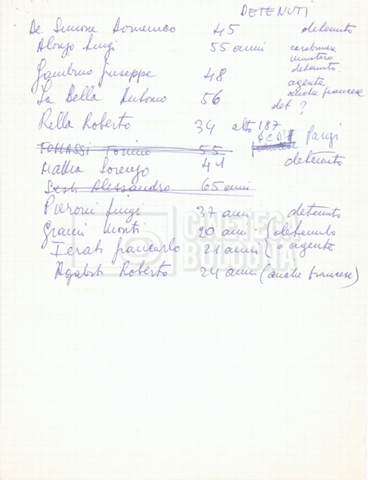 DETENUTI
De Simone Domenico 45 detenuto
Alonzo Luigi 55 anni carabiniere
ministero
Gambino Giuseppe 48 detenuto
agente
La Bella Antonio 56 anche francese
det ?
Rella Roberto 34 alto 187 Parigi
TOMASSI Tonino 55
Mattia Lorenzo 41 detenuto
Sesti Alessandro 65 anni
Pieroni Luigi 37 anni detenuto
Gianni Monti 20 anni (detenuto
Ierati Giancarlo 21 anni (o agente
Agabiti Roberto 24 anni (anche francese)
CINETECA
BOLOGNA